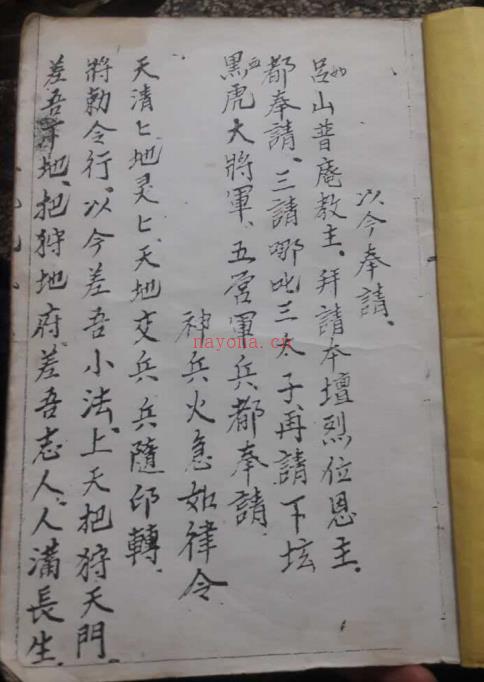 以今奉請、
呂山普庵教主、拜請本壇烈位恩主、
都奉請、三請哪吒三太子再請下坛
黑虎大將軍、五营軍兵、都奉請、
神兵火急如律令
天清匕地灵匕、天地交兵、兵隨印轉、
將勅令行、以今差吾小法、上天把狩天門、
差吾地、把狩地府、差吾志人、人滿長生、
nayona.cn